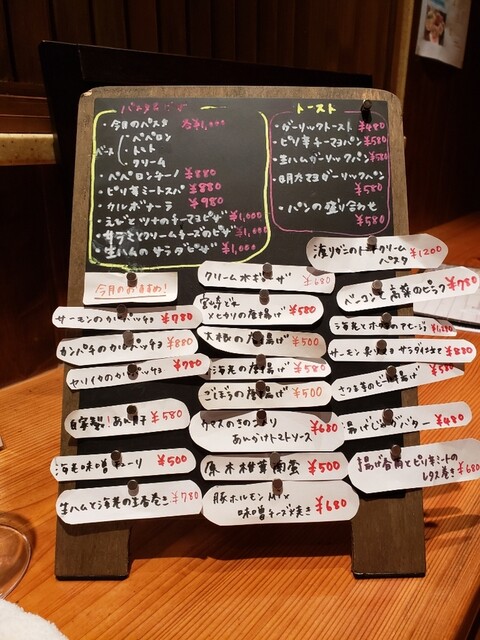 パスタ&ピザ
・今月のパスタ 各¥1,000
ベース
ペペロン
トマト
クリーム
・ペペロンチーノ ¥880
・ピリ辛ミートスパ ¥880
・カルボナーラ ¥980
・えびとツナのチーマヨピザ ¥1,000
・サラミとクリームチーズのピザ ¥1,000
・生ハムのサラダピザ ¥1,000
トースト
・ガーリックトースト ¥480
・ピリ辛チーマヨパン ¥580
・生ハムガーリックパン ¥580
・明太マヨガーリックパン
¥580
・パンの盛り合わせ
¥580
渡りガニのトマトクリーム
パスタ ¥1200
今月のおすすめ!
サーモンのカルパッチョ ¥780
カンパチのカルパッチョ ¥880
ヤリイカのカルパッチョ ¥780
自家製! ¥580
海老味噌 ¥500
生ハムと海老の生春巻き ¥780
クリームポギーザ ¥680
の唐揚げ ¥580
大根の唐揚げ ¥500
海老の唐揚げ ¥580
ごぼうの唐揚げ ¥500
あんかけトマトソース ¥680
原木椎茸 ¥500
豚ホルモンMIX
味噌チーズ焼き ¥680
ベーコンと高菜のピラフ ¥780
海老とホタテのアヒージョ
サーモン サラダ仕立て ¥880
さつま芋の 揚げ ¥580
揚げじゃがバター ¥480
揚げ春雨とピリ辛ミートの
レタス巻き ¥680